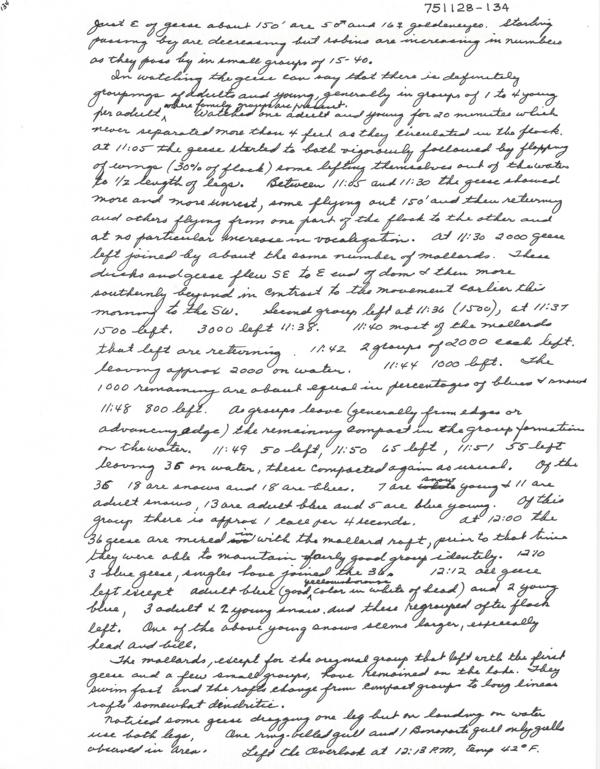 134
751128-134
Just E of geese about 150' are 50♂ and 16♀ goldeneyes. Starling
passing by are decreasing but robins are increasing in numbers
as they pass by in small groups of 15-40.
In watching the geese can say that there is definitely
groupings of adults and young, generally in groups of 1 to 4 young
per adult, where family groups are present. Watched one adult and young for 20 minutes which
never separated more than 4 feet as they circulated in the flock.
At 11:05 the geese started to bath vigorously followed by flapping
of wings (30% of flock) some lifting themselves out of the water
to 1/2 length of legs. Between 11:05 and 11:30 the geese showed
more and more unrest, some flying out 150' and then returning
and others flying from one part of the flock to the other and
at no particular increase in vocalization. At 11:30 2000 geese
left joined by about the same number of mallards. These
ducks and geese flew SE to E end of dam & then more
southernly beyond in contrast to the movement earlier this
morning to the SW. Second group left at 11:36 (1500), at 11:37
1500 left. 3000 left 11:38. 11:40 most of the mallards
that left are returning. 11:42 2 groups of 2000 each left.
leaving approx 2000 on water. 11:44 1000 left. The
1000 remaining are about equal in percentages of blues & snows
11:48 800 left. As groups leave (generally from edges or
advancing edge) the remaining compact in the group formation
on the water. 11:49 50 left, 11:50 65 left, 11:51 55 left
leaving 36 on water, these compacted again as usual. Of the
36 18 are snows and 18 are blues. 7 are snow young & 11 are
adult snows, 13 are adult blue and 5 are blue young. Of this
group there is approx 1 call per 4 seconds. At 12:00 the
36 geese are mixed in with the mallard raft, prior to that time
they were able to maintain fairly good group identity. 12:10
3 blue geese, singles have joined the 36. 12:12 all geese
left except adult blue (good yellowish orange color in white of head) and 2 young
blue, 3 adult & 2 young snow and these regrouped after flock
left. One of the above young snows seems larger, especially
head and bill.
The mallards, except for the original group that left with the first
geese and a few small groups, have remained on the lake. They
swim fast and the rafts change from compact groups to long linear
rafts somewhat dendritic.
Noticed some geese dragging one leg but on landing on water
use both legs. One ring-billed gull and 1 Bonaparte gull only gulls
observed in area. Left the Overlook at 12:13 P.M., temp 42°F.